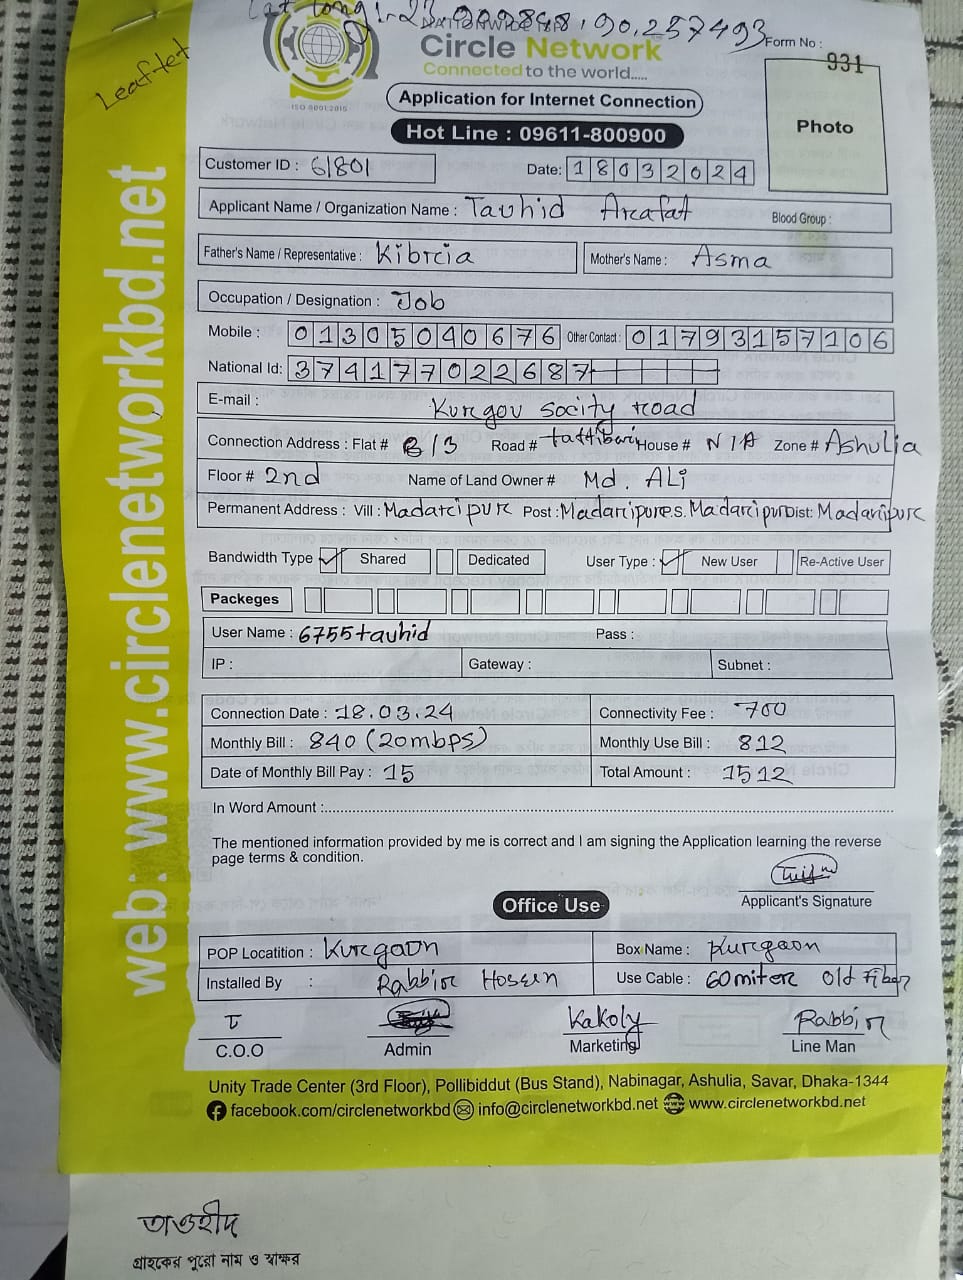 Lat Long :- 23.922848, 90.257493
Leaflet
Circle Network
Form No :
931
Connected to the world.....
ISO 9001:2015
Application for Internet Connection
Photo
Hot Line : 09611-800900
Customer ID : 61801 Date: 18032024
Applicant Name / Organization Name : Tauhid Arafat Blood Group :
Father's Name / Representative : Kibria Mother's Name : Asma
Occupation / Designation : Job
Mobile : 01305040676 Other Contact : 01793157106
National Id: 374177022687
E-mail :
Kurgou socity road
Connection Address : Flat # B/3 Road # tattibari House # N/A Zone # Ashulia
Floor # 2nd Name of Land Owner # Md. ALi
Permanent Address : Vill : Madaripur Post : Madaripur P.S. Madaripur Dist: Madaripur
Bandwidth Type Shared Dedicated User Type : New User Re-Active User
Packeges
User Name : 6755tauhid Pass :
IP : Gateway : Subnet :
Connection Date : 18.03.24 Connectivity Fee : 700
Monthly Bill : 840 (20mbps) Monthly Use Bill : 812
Date of Monthly Bill Pay : 15 Total Amount : 1512
In Word Amount :
The mentioned information provided by me is correct and I am signing the Application learning the reverse
page terms & condition.
Applicant's Signature
Office Use
POP Locatition : Kurgaon Box Name : Kurgaon
Installed By : Rabbir Hossen Use Cable : 60miter Old Fiber
Kakoly Rabbir
C.O.O Admin Marketing Line Man
Unity Trade Center (3rd Floor), Pollibiddut (Bus Stand), Nabinagar, Ashulia, Savar, Dhaka-1344
facebook.com/circlenetworkbd info@circlenetworkbd.net www.circlenetworkbd.net
web: www.circlenetworkbd.net
তাওহীদ
গ্রাহকের পুরো নাম ও স্বাক্ষর